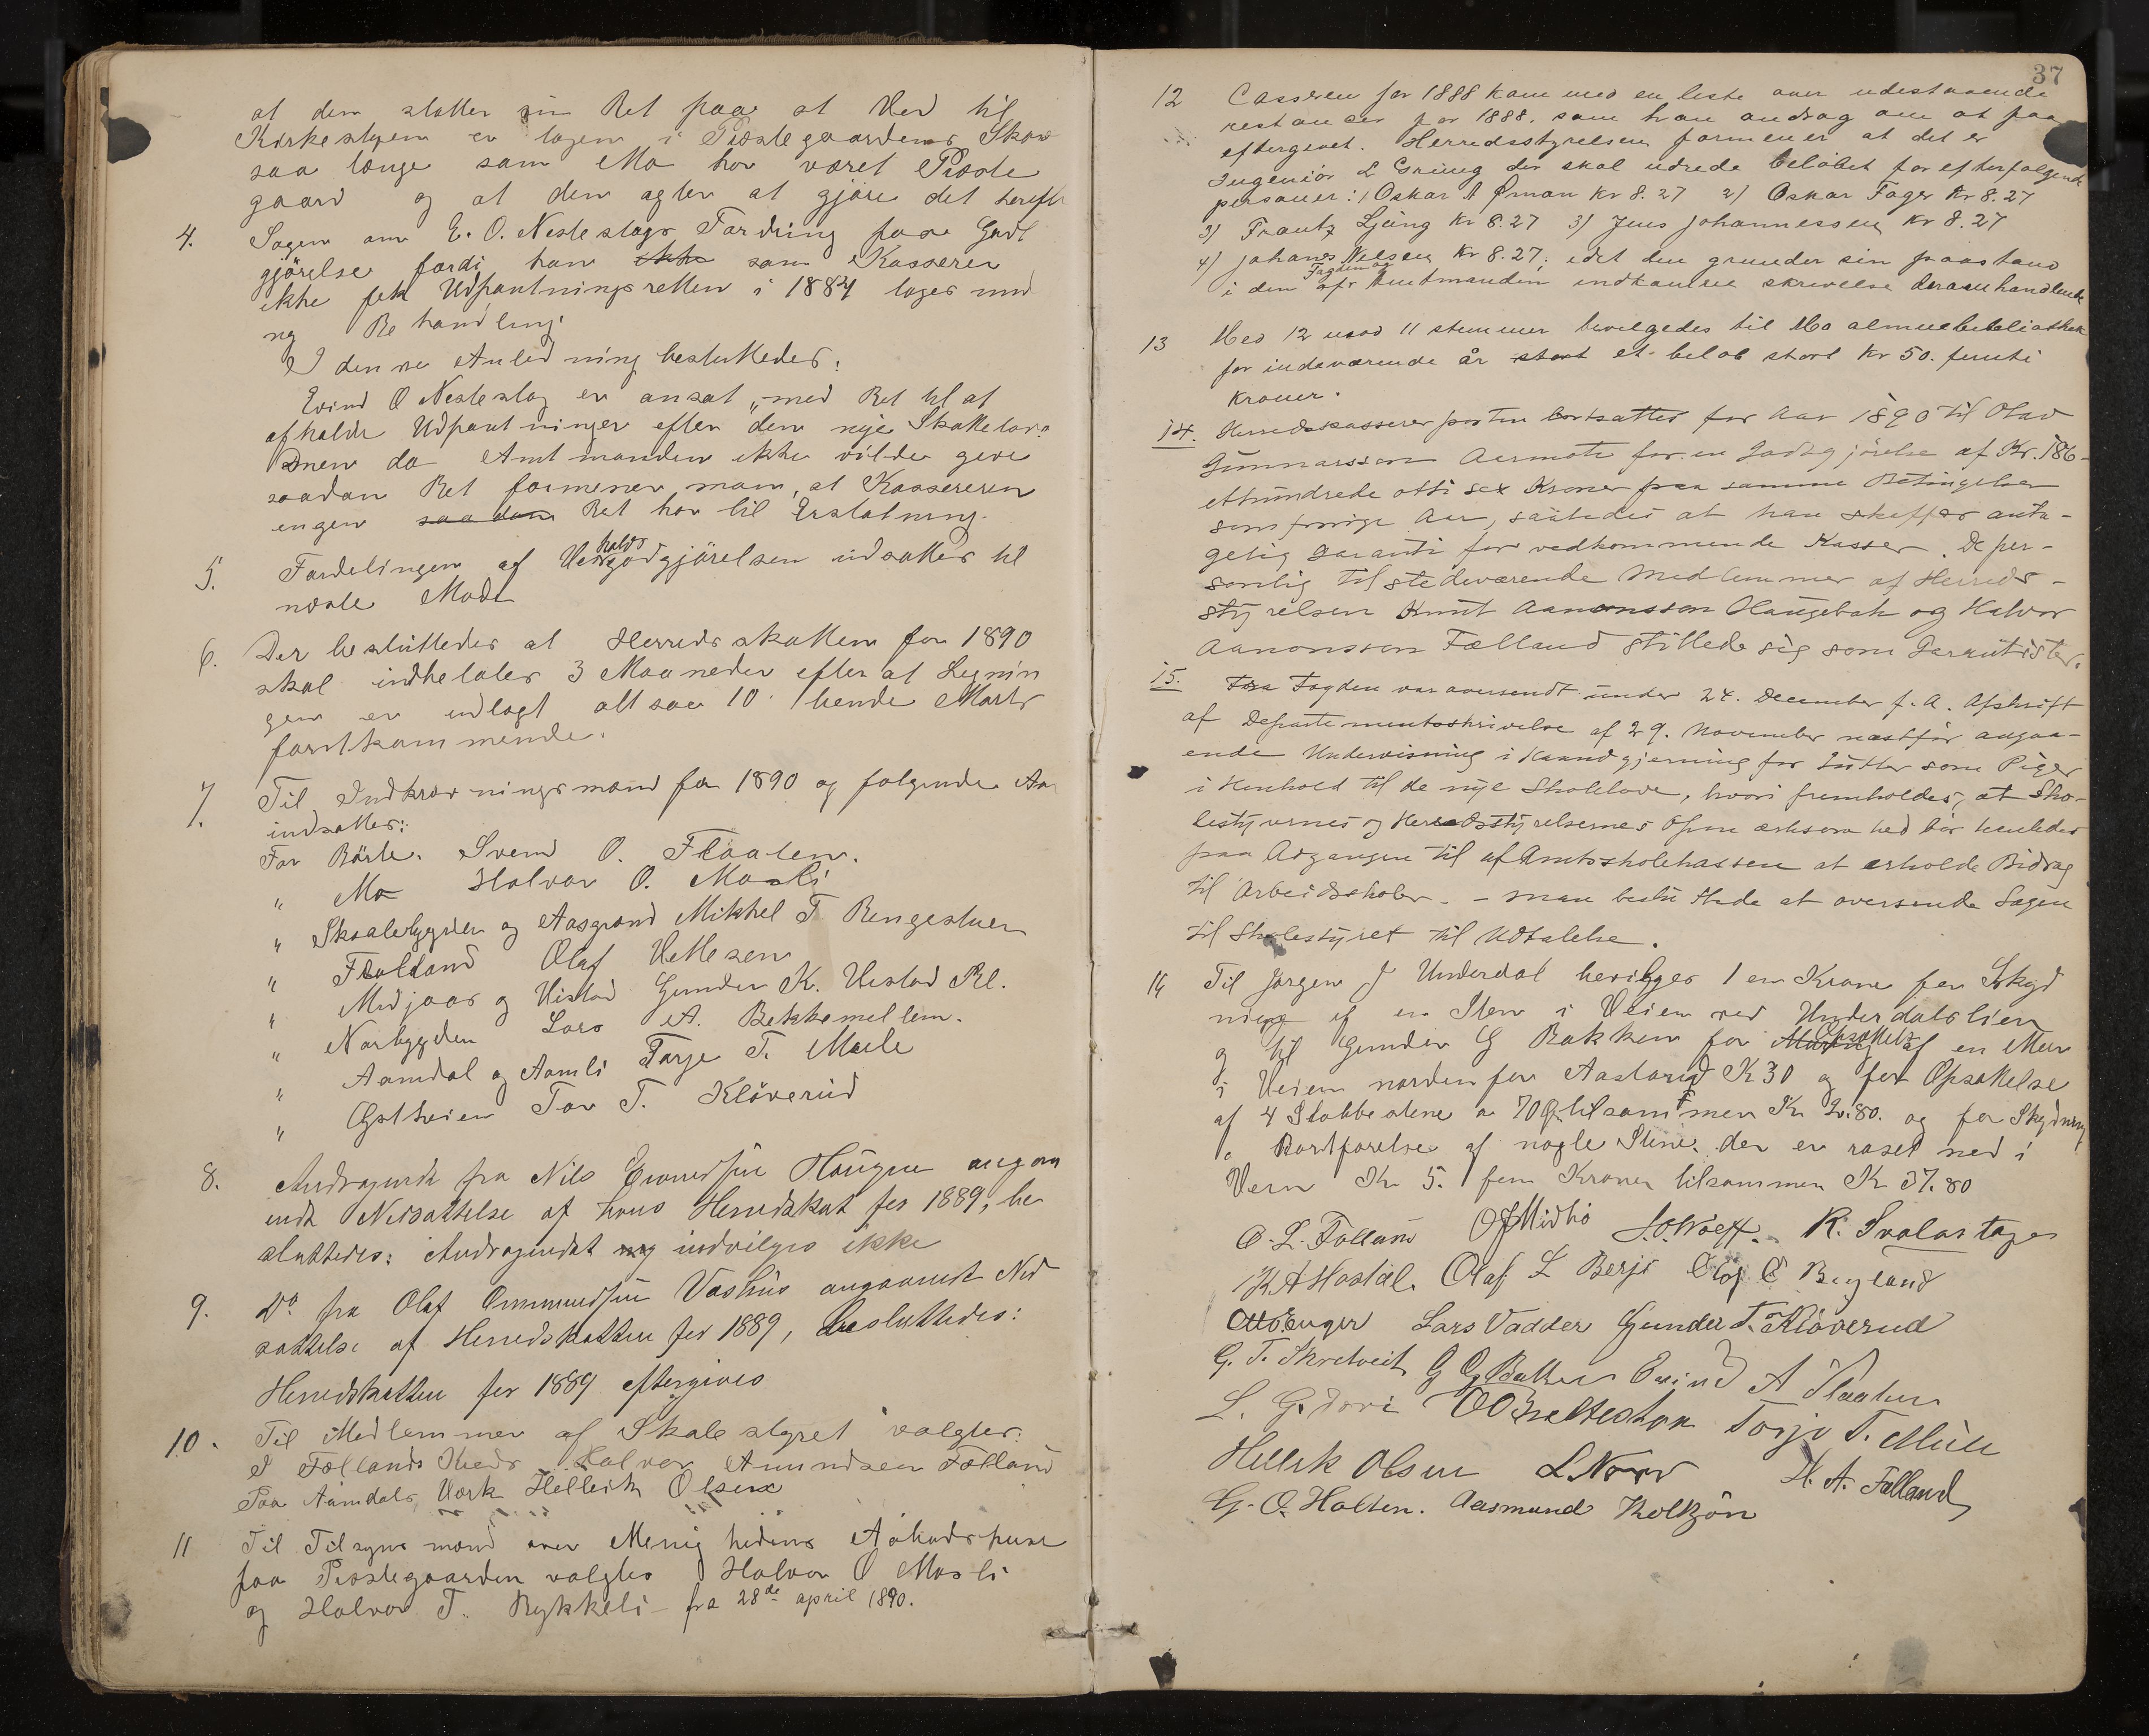 at den støtter sin Ret paa at Ved til
Kirkestuen er tagen i Præstegaardens Skov
saa længe som Mo har været Præste
gaard og at den agter at gjøre det herefter
4. Sagen om E. O. Nesteslogs Fordring paa Godt
gjörelse fordi han ikke som Kasserer
ikke fik Udpantningsretten i 1884 toges und
ny Behandling.
I denne Anledning besluttedes:
Eivind O Nesteslog er ansat "med Ret til at
afholde Udpantninger efter den nye Skattelov"
men da Amtmanden ikke vilde give
saadan Ret formener man, at Kassereren
ingen saadan Ret har til Erstatning.
5. Fordelingen af Vedholdsgodgjörelsen udsattes til
næste Møde
6. Der besluttedes at Herredsskatten for 1890
skal indbetales 3 Maaneder efter at Lignin
gen er udlagt altsaa 10 tiende Marts
førstkommende.
7. Til Indkrævningsmænd for 1890 og følgende Aar
indsattes:
For Börte. Svend O. Flaaten.
" Mo Halvor O. Mosli
" Skaalebygden og Aasgrand Mikkel T Rengestuen
" Folland Olaf Vettesen
" Midjaas og Vistad Gunder K. Vistad Bl.
" Norbygden Lars A. Bekkemellem.
" Aamdal og Aamli Tarje T. Mule
" Østheien Tor T. Klöverud
8. Andragende fra Nils Eivindssön Haugen angaa
ende Nedsættelse af hans Herredskat for 1889, be
sluttedes: Andragendet indvilges ikke
9. Do fra Olaf Ommundssön Vashus angaaende Ned
sættelse af Herredskatten for 1889, besluttedes:
Herredskatten for 1889 eftergives
10. Til Medlemmer af Skolestyret valgtes:
I Follands Kreds Halvor Amundsen Folland
Paa Aamdals Værk Helleik Olsen
11 Til Tilsynsmænd over Menighedens Aabodshuse
paa Præstegaarden valgtes Halvor O Mosli
og Halvor T. Rykkeli fra 28de april 1890.
37
12 Casseren for 1888 kom med en liste over udestaaende
restancer for 1888. som han androg om at faa
eftergivet. Herredsstyrelsen formener at det er
Ingeniör L Gring der skal udrede belöbet for efterfølgende
personer: 1) Oskar A Öman Kr 8.27 2) Oskar Fager Kr 8.27
3) Frantz Ljung Kr 8.27 3) Jens Johannessen Kr 8.27
4) Johans Nilsen Kr 8.27; idet den grunder sin paastand
i den af Fogden og Amtmanden indkomne skrivelse derom handlende
13 Med 12 mod 11 stemmer bevilgedes til Mo almuebibliothek
for indeværende år stort et belöb stort Kr 50. femti
Kroner.
14. Herredskassererposten bortsattes for Aar 1890 til Olav
Gunnarsson Aarmote for en Godtgjörelse af Kr. 186
ethundrede otti sex Kroner paa samme Betingelser
som forrige Aar, saaledes at han skaffer anta-
gelig Garanti for vedkommende Kasser. De per-
sonlig tilstedeværende Medlemmer af Herreds-
styrelsen Knut Aanonsson Haugebak og Halvor
Aanonsson Fælland stillede sig som Garantister.
15. Fra Fogden var oversendt under 24. December f. A. Afskrift
af Departementsskrivelse af 29. November næstfør angaa-
ende Undervisning i Haandgjerning for Gutter som Piger
i Henhold til de nye Skolelove, hvori fremholdes, at Sko-
lestyrernes og Herredsstyrelsernes Opmærksomhed bör henledes
paa Adgangen til af Amtsskolekassen at erholde Bidrag
til Arbeidsskoler. - Man besluttede at oversende Sagen
til Skolestyret til Udtalelse.
16 Til Jørgen J Underdal bevilges 1 en Krone for Skyd
ning af en Sten i Veien ved Underdalslien
og til Gunder G Bakken for Muring Opsættelse af en Mur
i Veien nordenfor Aastad Kr 30 og for Opsættelse
af 4 Stabbestene a 70 Ø tilsammen Kr 2.80. og for Skydning
o Bortførelse af nogle Stene der er raset ned i
Veien Kr 5. fem Kroner tilsammen Kr 37.80
O. L. Folland O J Midbö S. O. Wolff. K. Svalastoga
K A Hastal. Olaf L Berje Olaf O Bergland
Otto Unger Lars Vadder Gunder T. Klöverud
G. T. Skretveit G G Bakken Eivind A Flaaten
L. G. Dovi Torjo T. Mule
Helleik Olsen L. Nord H. A. Folland
G. O. Holten. Aasmund Kolbjön